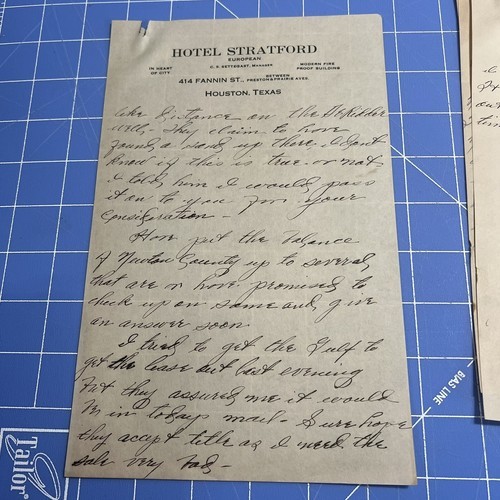 HOTEL STRATFORD
EUROPEAN
IN HEART OF CITY
MODERN FIRE PROOF BUILDING
MANAGER
414 FANNIN ST., BETWEEN PRESTON & PRAIRIE AVES.
HOUSTON, TEXAS
like distance on the DeRidder
well. They claim to have
found a sand up there I don't
know if this is true or not
I told him I would pass
it on to you for your
Consideration -
Have put the balance
of Newton County up to several
that are in have promised to
check up on same and give
an answer soon.
I tried to get the Gulf to
get the lease out last evening
but they assured me it would
be in todays mail - Sure hope
they accept title as I need the
sale very bad -
BIAS LINE
Tailor